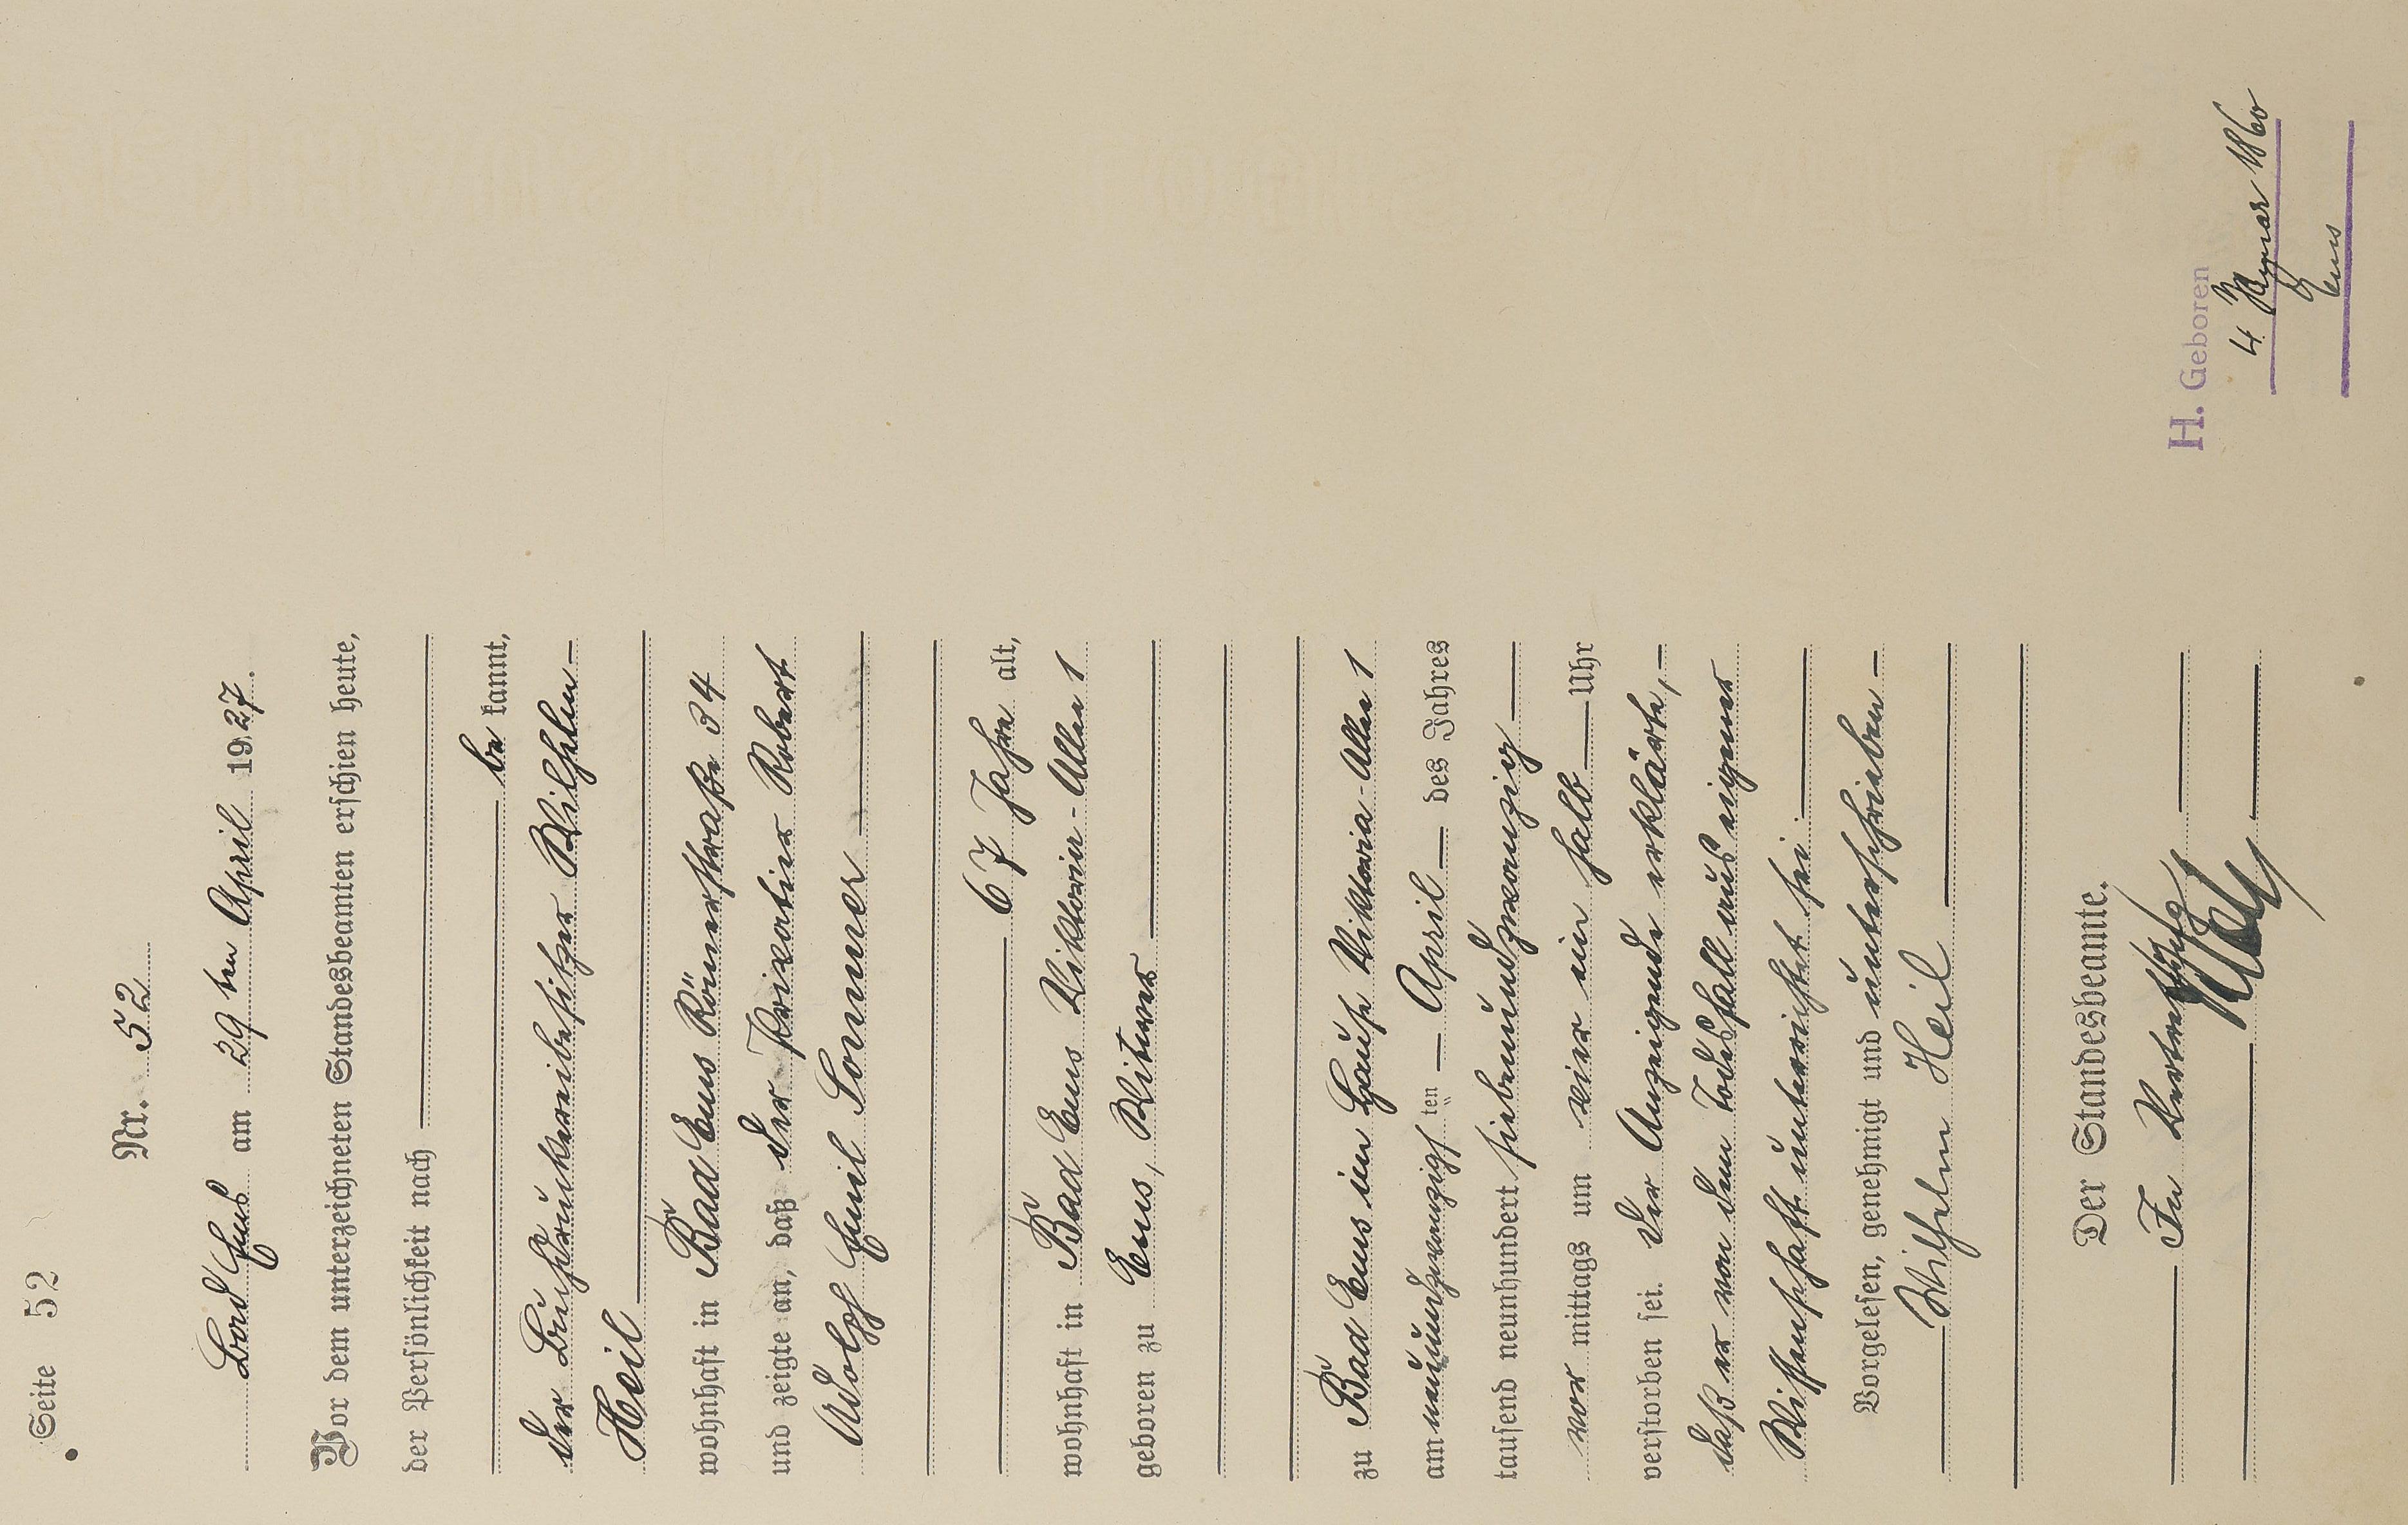 Seite 52
Nr. 52
Bad Ems am 29 ten April 1927.
Vor dem unterzeichneten Standesbeamten erschien heute,
der Persönlichkeit nach
be kannt,
der Buchdruckereibesitzer Wilhelm
Heil
wohnhaft in Bad Ems Römerstraße 34
und zeigte an, daß der Privatier Robert
Adolph Emil Sommer
67 Jahre alt,
wohnhaft in Bad Ems Viktoria-Allee 1
geboren zu Ems, Witwer
zu Bad Ems im Hause Viktoria-Allee 1
am neunundzwanzigsten April des Jahres
tausend neunhundert siebenundzwanzig
vor mittags um vier ein halb Uhr
verstorben sei. Der Anzeigende erklärte,
daß er von dem Todesfall aus eigener
Wissenschaft unterrichtet sei.
Vorgelesen, genehmigt und unterschrieben
Wilhelm Heil
Der Standesbeamte.
In Vertretung
H. Geboren
4. Januar 1860
Ems